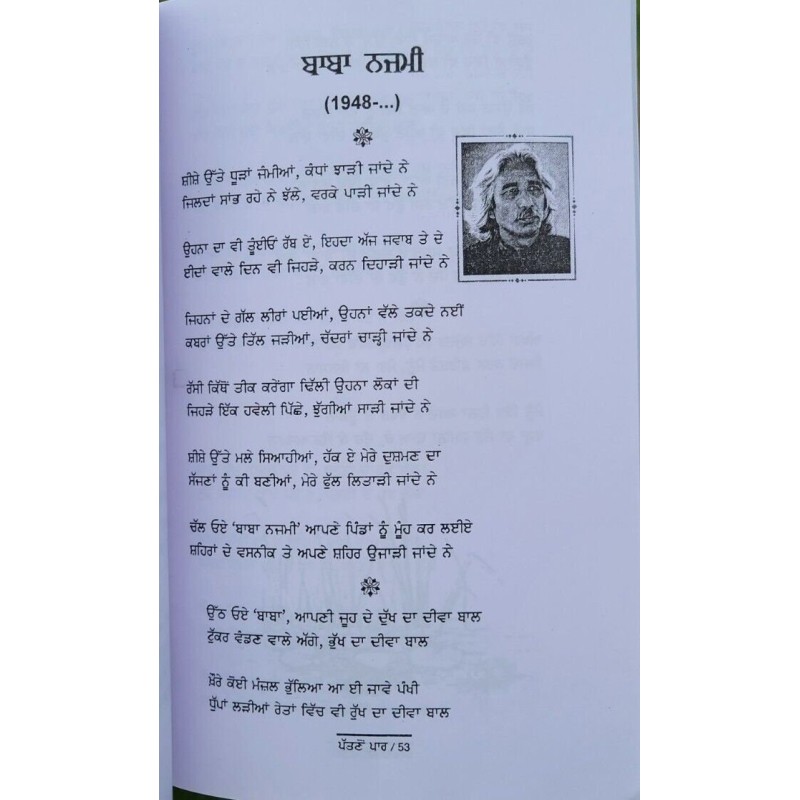 ਬਾਬਾ ਨਜਮੀ
(1948-...)
ਸ਼ੀਸ਼ੇ ਉੱਤੇ ਧੂੜਾਂ ਜੰਮੀਆਂ, ਕੰਧਾਂ ਝਾੜੀ ਜਾਂਦੇ ਨੇ
ਜਿਲਦਾਂ ਸਾਂਭ ਰਹੇ ਨੇ ਝੱਲੇ, ਵਰਕੇ ਪਾੜੀ ਜਾਂਦੇ ਨੇ
ਉਹਨਾ ਦਾ ਵੀ ਤੂੰਈਓਂ ਰੱਬ ਏਂ, ਇਹਦਾ ਅੱਜ ਜਵਾਬ ਤੇ ਦੇ
ਈਦਾਂ ਵਾਲੇ ਦਿਨ ਵੀ ਜਿਹੜੇ, ਕਰਨ ਦਿਹਾੜੀ ਜਾਂਦੇ ਨੇ
ਜਿਹਨਾਂ ਦੇ ਗੱਲ ਲੀਰਾਂ ਪਈਆਂ, ਉਹਨਾਂ ਵੱਲੇ ਤਕਦੇ ਨਈਂ
ਕਬਰਾਂ ਉੱਤੇ ਤਿੱਲ ਜੜੀਆਂ, ਚੱਦਰਾਂ ਚਾੜ੍ਹੀ ਜਾਂਦੇ ਨੇ
ਰੱਸੀ ਕਿੱਥੋਂ ਤੀਕ ਕਰੇਂਗਾ ਢਿੱਲੀ ਉਹਨਾ ਲੋਕਾਂ ਦੀ
ਜਿਹੜੇ ਇੱਕ ਹਵੇਲੀ ਪਿੱਛੇ, ਝੁੱਗੀਆਂ ਸਾੜੀ ਜਾਂਦੇ ਨੇ
ਸ਼ੀਸ਼ੇ ਉੱਤੇ ਮਲੇ ਸਿਆਹੀਆਂ, ਹੱਕ ਏ ਮੇਰੇ ਦੁਸ਼ਮਣ ਦਾ
ਸੱਜਣਾਂ ਨੂੰ ਕੀ ਬਣੀਆਂ, ਮੇਰੇ ਫੁੱਲ ਲਿਤਾੜੀ ਜਾਂਦੇ ਨੇ
ਚੱਲ ਓਏ ‘ਬਾਬਾ ਨਜਮੀ’ ਆਪਣੇ ਪਿੰਡਾਂ ਨੂੰ ਮੂੰਹ ਕਰ ਲਈਏ
ਸ਼ਹਿਰਾਂ ਦੇ ਵਸਨੀਕ ਤੇ ਅਪਣੇ ਸ਼ਹਿਰ ਉਜਾੜੀ ਜਾਂਦੇ ਨੇ
ਉੱਠ ਓਏ ‘ਬਾਬਾ’, ਆਪਣੀ ਜੂਹ ਦੇ ਦੁੱਖ ਦਾ ਦੀਵਾ ਬਾਲ
ਟੁੱਕਰ ਵੰਡਣ ਵਾਲੇ ਅੱਗੇ, ਭੁੱਖ ਦਾ ਦੀਵਾ ਬਾਲ
ਖ਼ੌਰੇ ਕੋਈ ਮੰਜ਼ਲ ਭੁੱਲਿਆ ਆ ਈ ਜਾਵੇ ਪੰਖੀ
ਧੁੱਪਾਂ ਲੜੀਆਂ ਰੇਤਾਂ ਵਿੱਚ ਵੀ ਰੁੱਖ ਦਾ ਦੀਵਾ ਬਾਲ
ਪੱਤਣੋਂ ਪਾਰ / 53